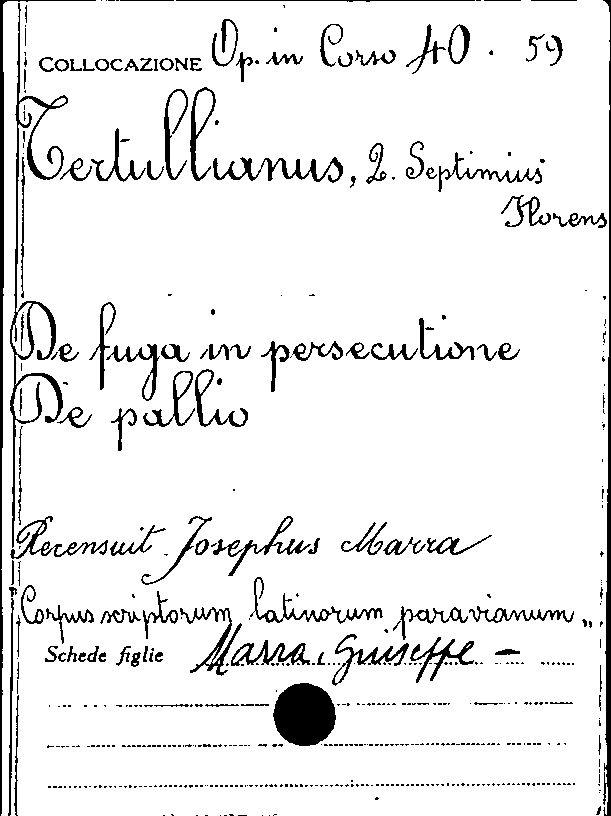 COLLOCAZIONE Op. in Corso 40 . 59
Tertullianus, Q. Septimius
Florens
De fuga in persecutione
De pallio
Recensuit Josephus Marra
"Corpus scriptorum latinorum paravianum"
Schede figlie Marra, Giuseppe –